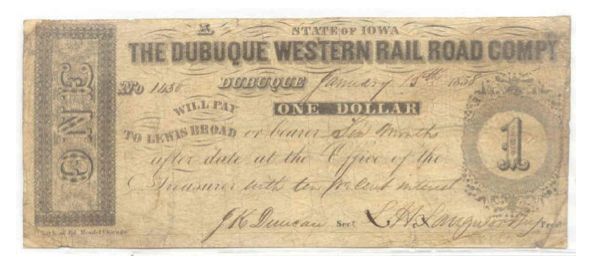 A
STATE OF IOWA
THE DUBUQUE WESTERN RAIL ROAD COMPY
No 1430 DUBUQUE January 15th 1858
WILL PAY ONE DOLLAR
TO LEWIS BROAD or bearer Six Months
after date at the Office of the
Treasurer with ten pr Cent interest
J K Duncan Secy. L. H. Langworthy Treasr
ONE
1
Ed. Mendel Chicago